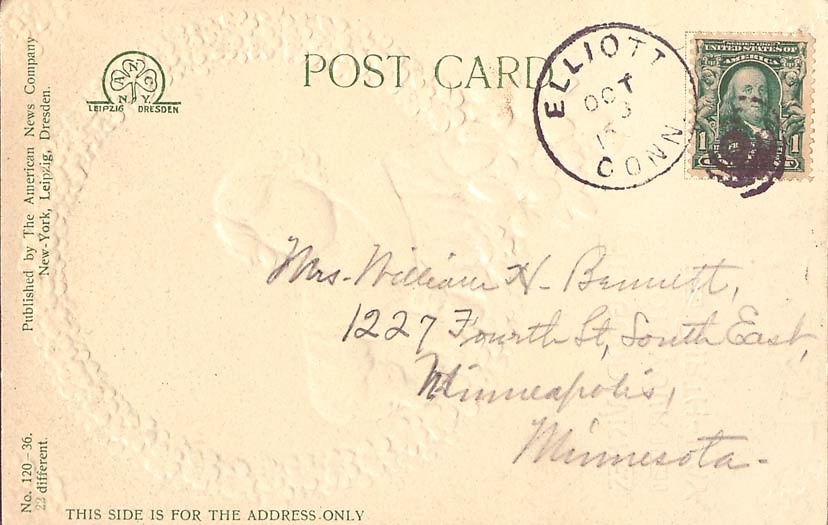 POST CARD
A N C
N. Y.
LEIPZIG DRESDEN
Published by The American News Company
New-York, Leipzig, Dresden.
No. 120 – 36.
22 different.
ELLIOTT
OCT
CONN
SERIES 1902
UNITED STATES OF
AMERICA
1 1
Mrs. William H. Bennett,
1227 Fourth St, South East,
Minneapolis,
Minnesota.
THIS SIDE IS FOR THE ADDRESS ONLY